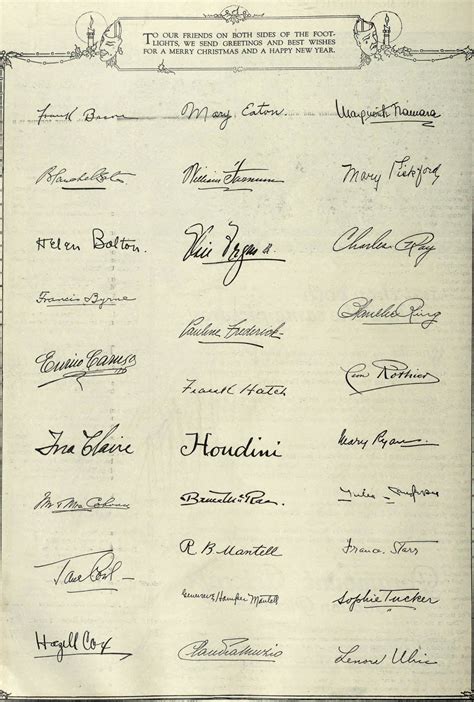 TO OUR FRIENDS ON BOTH SIDES OF THE FOOT-
LIGHTS, WE SEND GREETINGS AND BEST WISHES
FOR A MERRY CHRISTMAS AND A HAPPY NEW YEAR.
Frank Bacon
Blanche Bates
Helen Bolton.
Francis Byrne
Enrico Caruso
Ina Claire
Mr & Mrs Coburn
Jane Cowl
Hazell Cox
Mary Eaton.
William Farnum
Pauline Frederick
Frank Hatch
Houdini
Bruce McRae
R B Mantell
Genevieve Hamper Mantell
Claudia Muzio
Marguerite Namara
Mary Pickford
Charles Ray
Blanche Ring
Léon Rothier
Mary Ryan.
Frances Starr
Sophie Tucker
Lenore Ulric